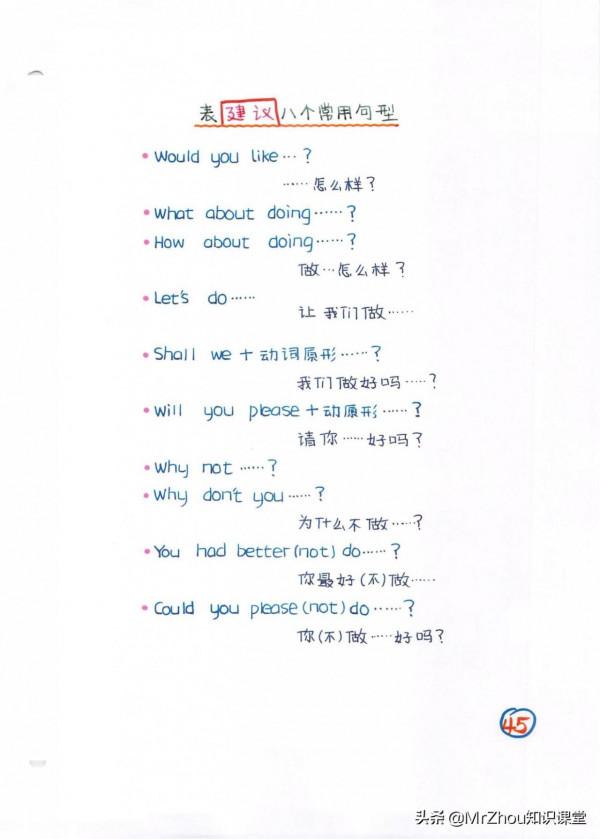 表建议八个常用句型
• Would you like…?
……怎么样?
• What about doing……?
• How about doing……?
做…怎么样?
• Let's do……
让我们做……
• Shall we + 动词原形……?
我们做好吗……?
• Will you please + 动原形……?
请你……好吗?
• Why not……?
• Why don't you……?
为什么不做……?
• You had better(not) do……?
你最好(不)做……
• Could you please(not) do……?
你(不)做……好吗?
45
头条 @MrZhou知识课堂